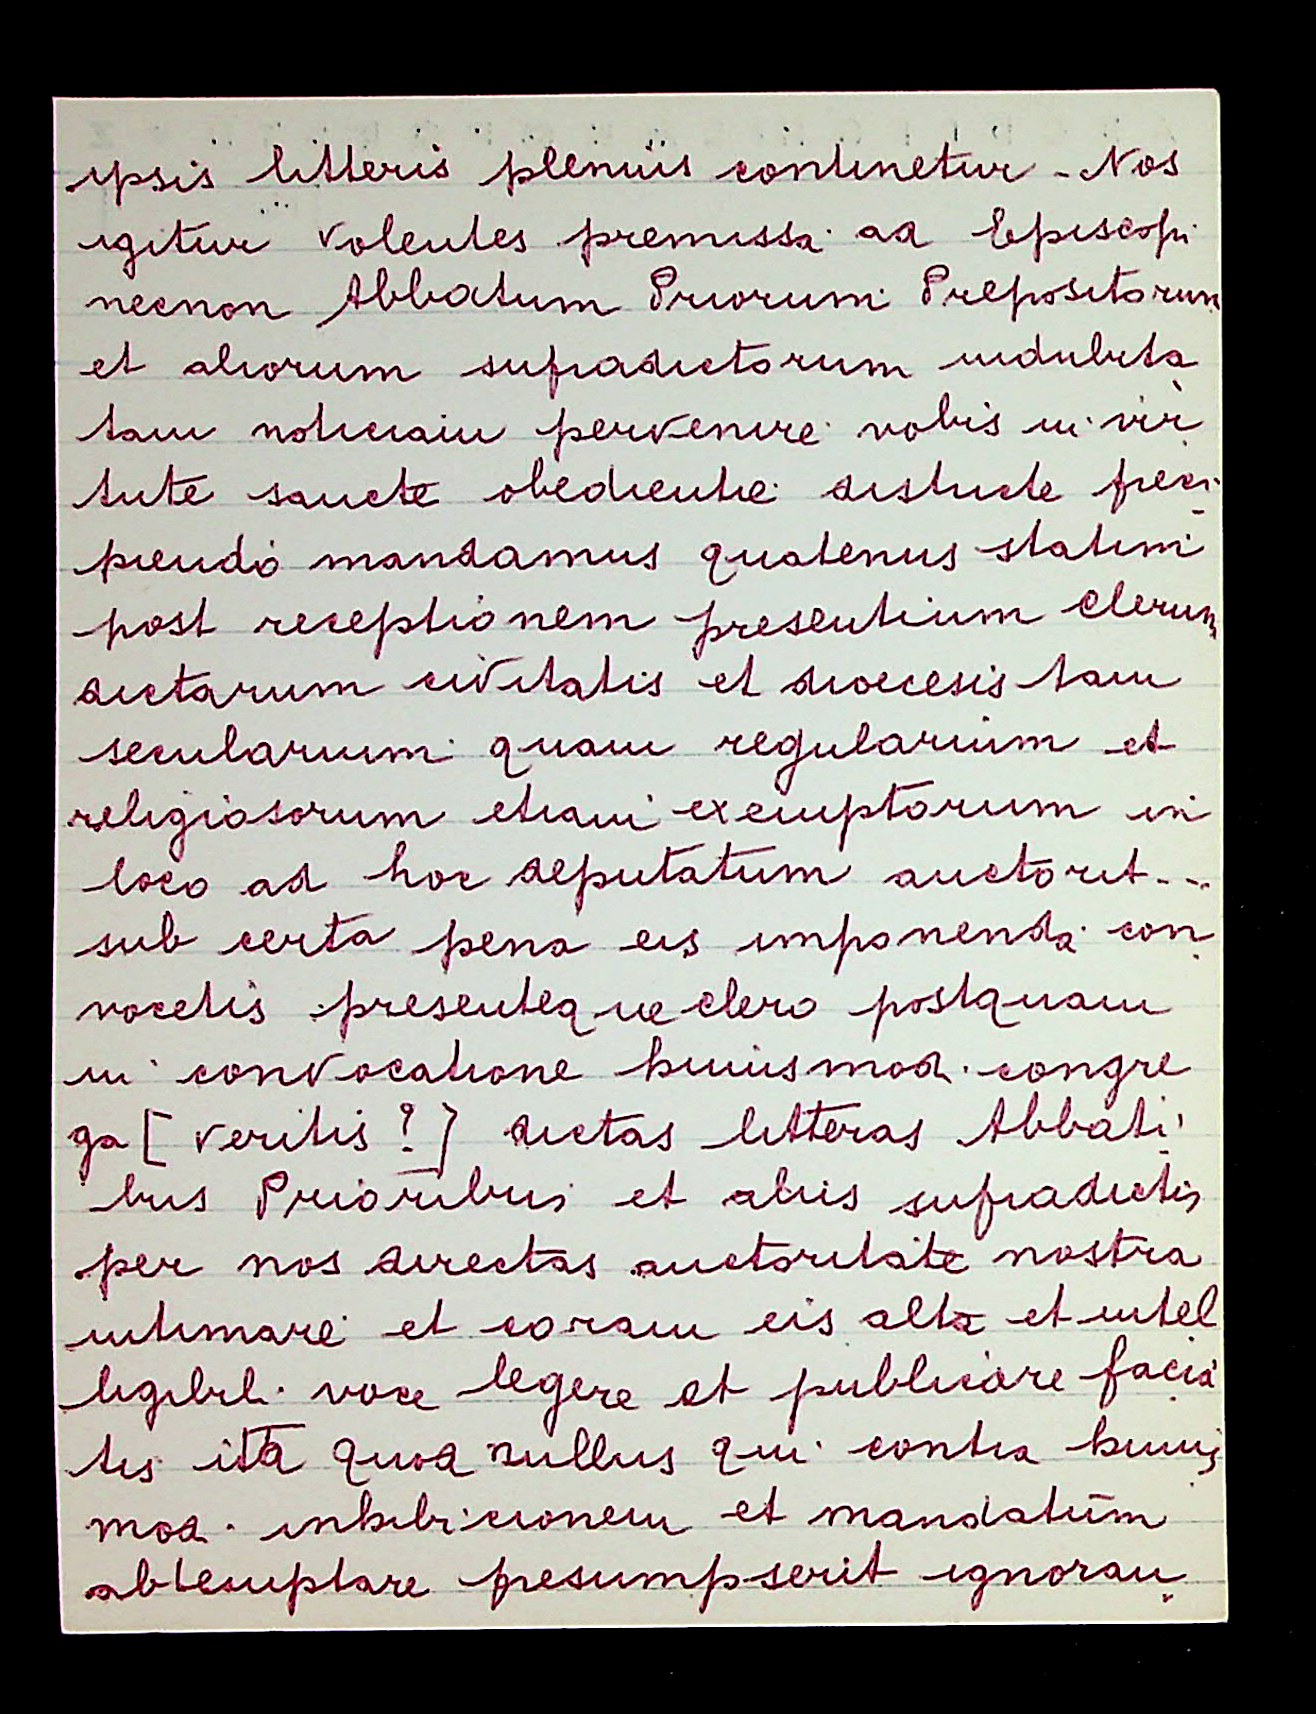 ipsis litteris plenius continetur - Nos
igitur volentes premissa ad Episcopi
necnon Abbatum Priorum Prepositorum
et aliorum supradictorum indubita
tam noticiam pervenire vobis in vir
tute sancte obedientie districte preci
piendo mandamus quatenus statim
post receptionem presentium clerum
dictarum civitatis et diocesis tam
secularium quam regularium et
religiosorum etiam exemptorum in
loco ad hoc deputatum auctorit---
sub certa pena eis imponenda con
vocetis presenteque clero postquam
in convocatione huiusmod. congre
ga [veritis?] dictas litteras Abbati
bus Prioribus et aliis supradictis
per nos directas auctoritate nostra
intimare et coram eis alta et intel
ligibil. voce legere et publicare facia
tis ita quod nullus qui contra huius
mod. inhibicionem et mandatum
abtemptare presumpserit ignoran